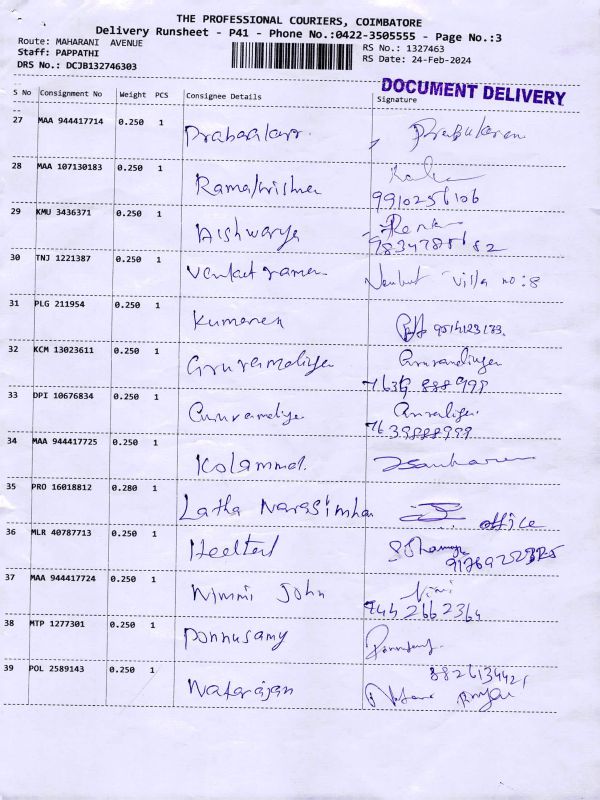 THE PROFESSIONAL COURIERS, COIMBATORE
Delivery Runsheet - P41 - Phone No.:0422-3505555 - Page No.:3
Route: MAHARANI AVENUE RS No.: 1327463
Staff: PAPPATHI RS Date: 24-Feb-2024
DRS No.: DCJB132746303
DOCUMENT DELIVERY
S No Consignment No Weight PCS Consignee Details Signature
27 MAA 944417714 0.250 1 Prabaakarr. Prabukaran
28 MAA 107130183 0.250 1 Ramakrishna
9910256106
29 KMU 3436371 0.250 1 Aishwarya
30 TNJ 1221387 0.250 1 Venkatraman Villa no:8
31 PLG 211954 0.250 1 Kumaran
32 KCM 13023611 0.250 1 Gruvamaliya
7639 888 999
33 DPI 10676834 0.250 1
7639888999
34 MAA 944417725 0.250 1 Kolammal.
35 PRO 16018812 0.280 1 Latha Narasimhan office
36 MLR 40787713 0.250 1
37 MAA 944417724 0.250 1 Nimmi John Nimi
7442662364
38 MTP 1277301 0.250 1 Ponnusamy
39 POL 2589143 0.250 1 Natarajan